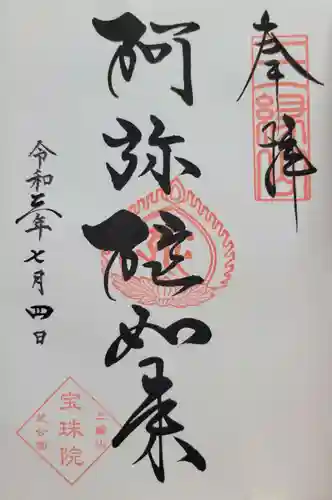 奉拝
阿弥陀如来
令和三年七月四日
三縁山
宝珠院